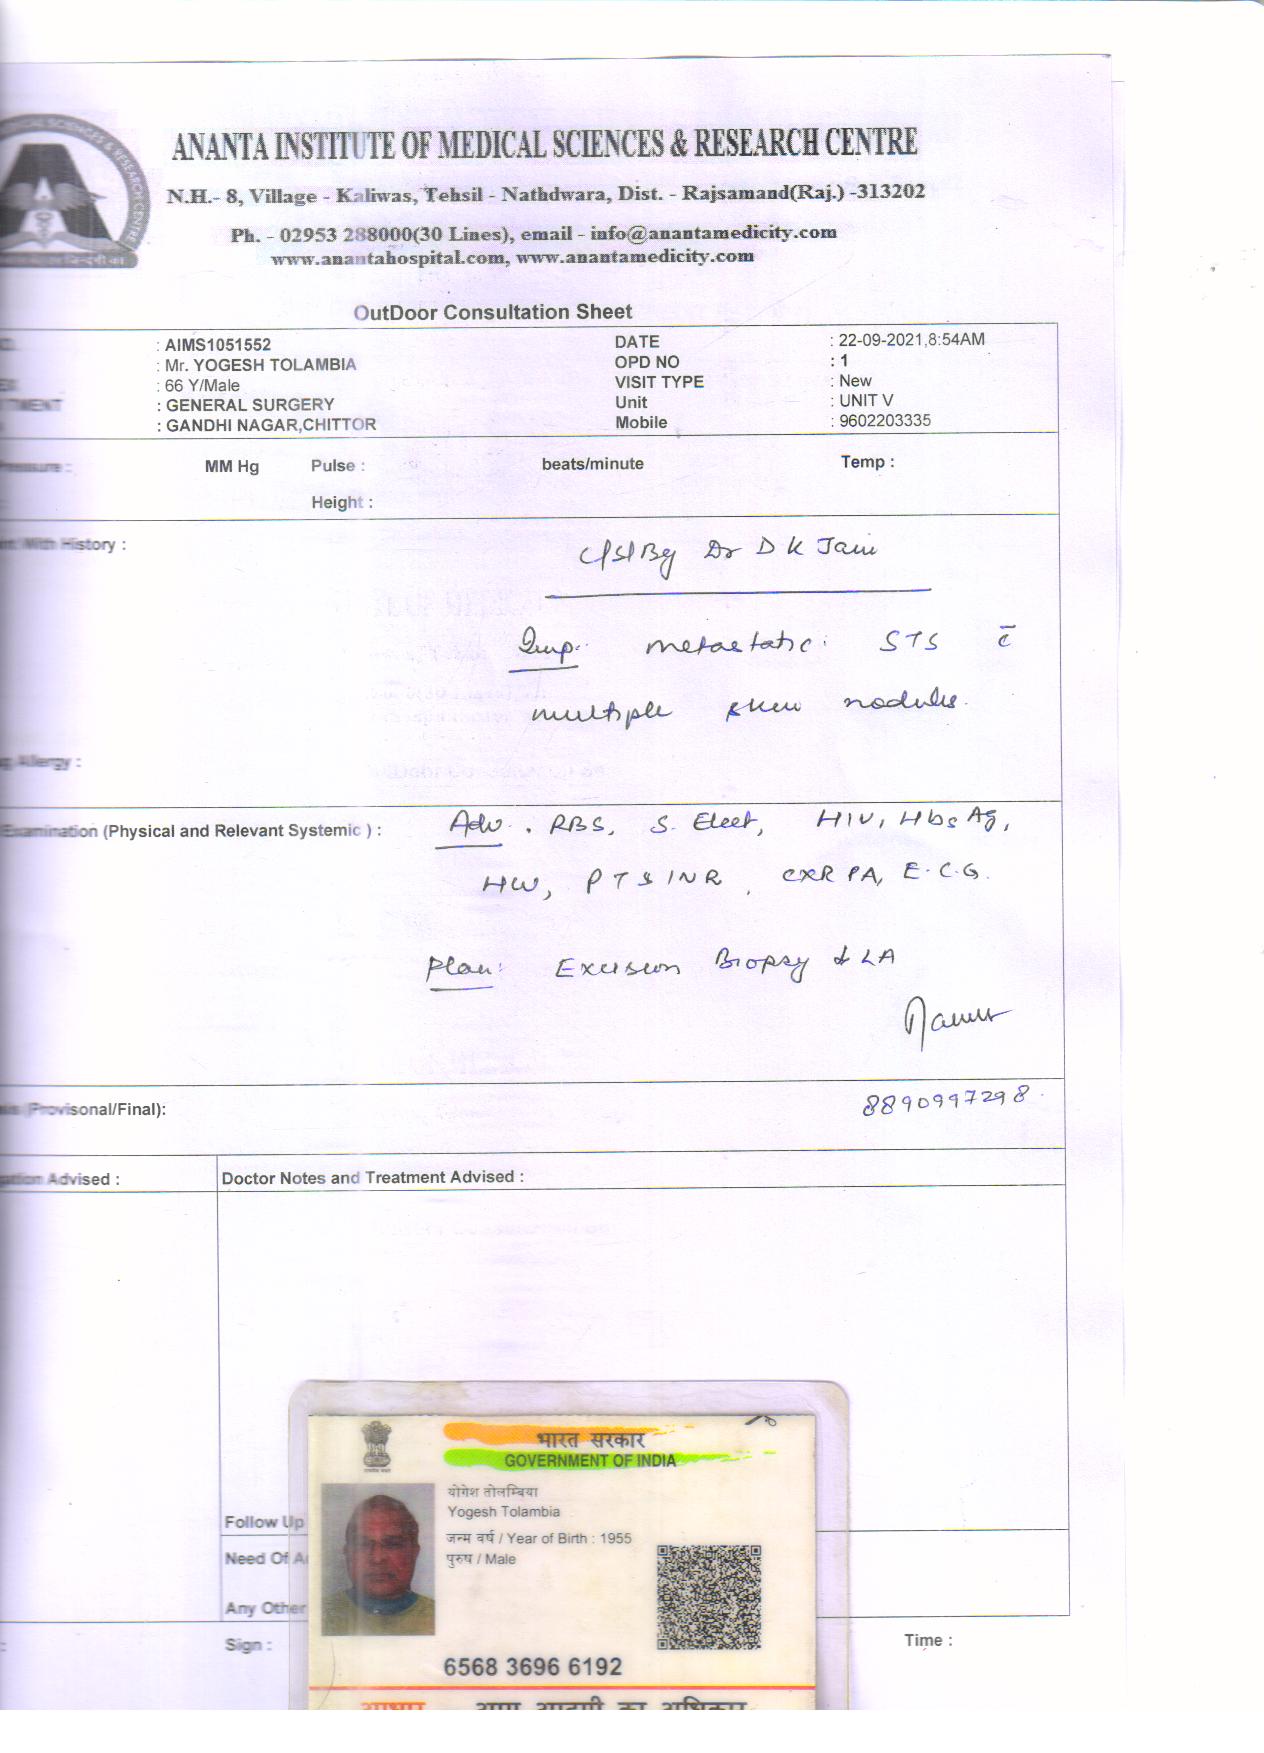 ANANTA INSTITUTE OF MEDICAL SCIENCES & RESEARCH CENTRE
N.H.- 8, Village - Kaliwas, Tehsil - Nathdwara, Dist. - Rajsamand(Raj.) -313202
Ph. - 02953 288000(30 Lines), email - info@anantamedicity.com
www.anantahospital.com, www.anantamedicity.com
OutDoor Consultation Sheet
: AIMS1051552 DATE : 22-09-2021,8:54AM
: Mr. YOGESH TOLAMBIA OPD NO : 1
: 66 Y/Male VISIT TYPE : New
: GENERAL SURGERY Unit : UNIT V
: GANDHI NAGAR,CHITTOR Mobile : 9602203335
MM Hg Pulse : beats/minute Temp :
Height :
With History :
C/S/By Dr D K Jain
Imp: metastatic STS c̄
multiple skin nodules.
Allergy :
Examination (Physical and Relevant Systemic ) :
Adv. RBS, S. Elect, HIV, HbsAg,
PT & INR, CXR PA, E.C.G.
Plan: Excision Biopsy LA
(Provisonal/Final):
8890997298
Advised : Doctor Notes and Treatment Advised :
भारत सरकार
GOVERNMENT OF INDIA
योगेश तोलम्बिया
Yogesh Tolambia
जन्म वर्ष / Year of Birth : 1955
पुरुष / Male
Follow Up
Need Of
Any Other
Sign : Time :
6568 3696 6192